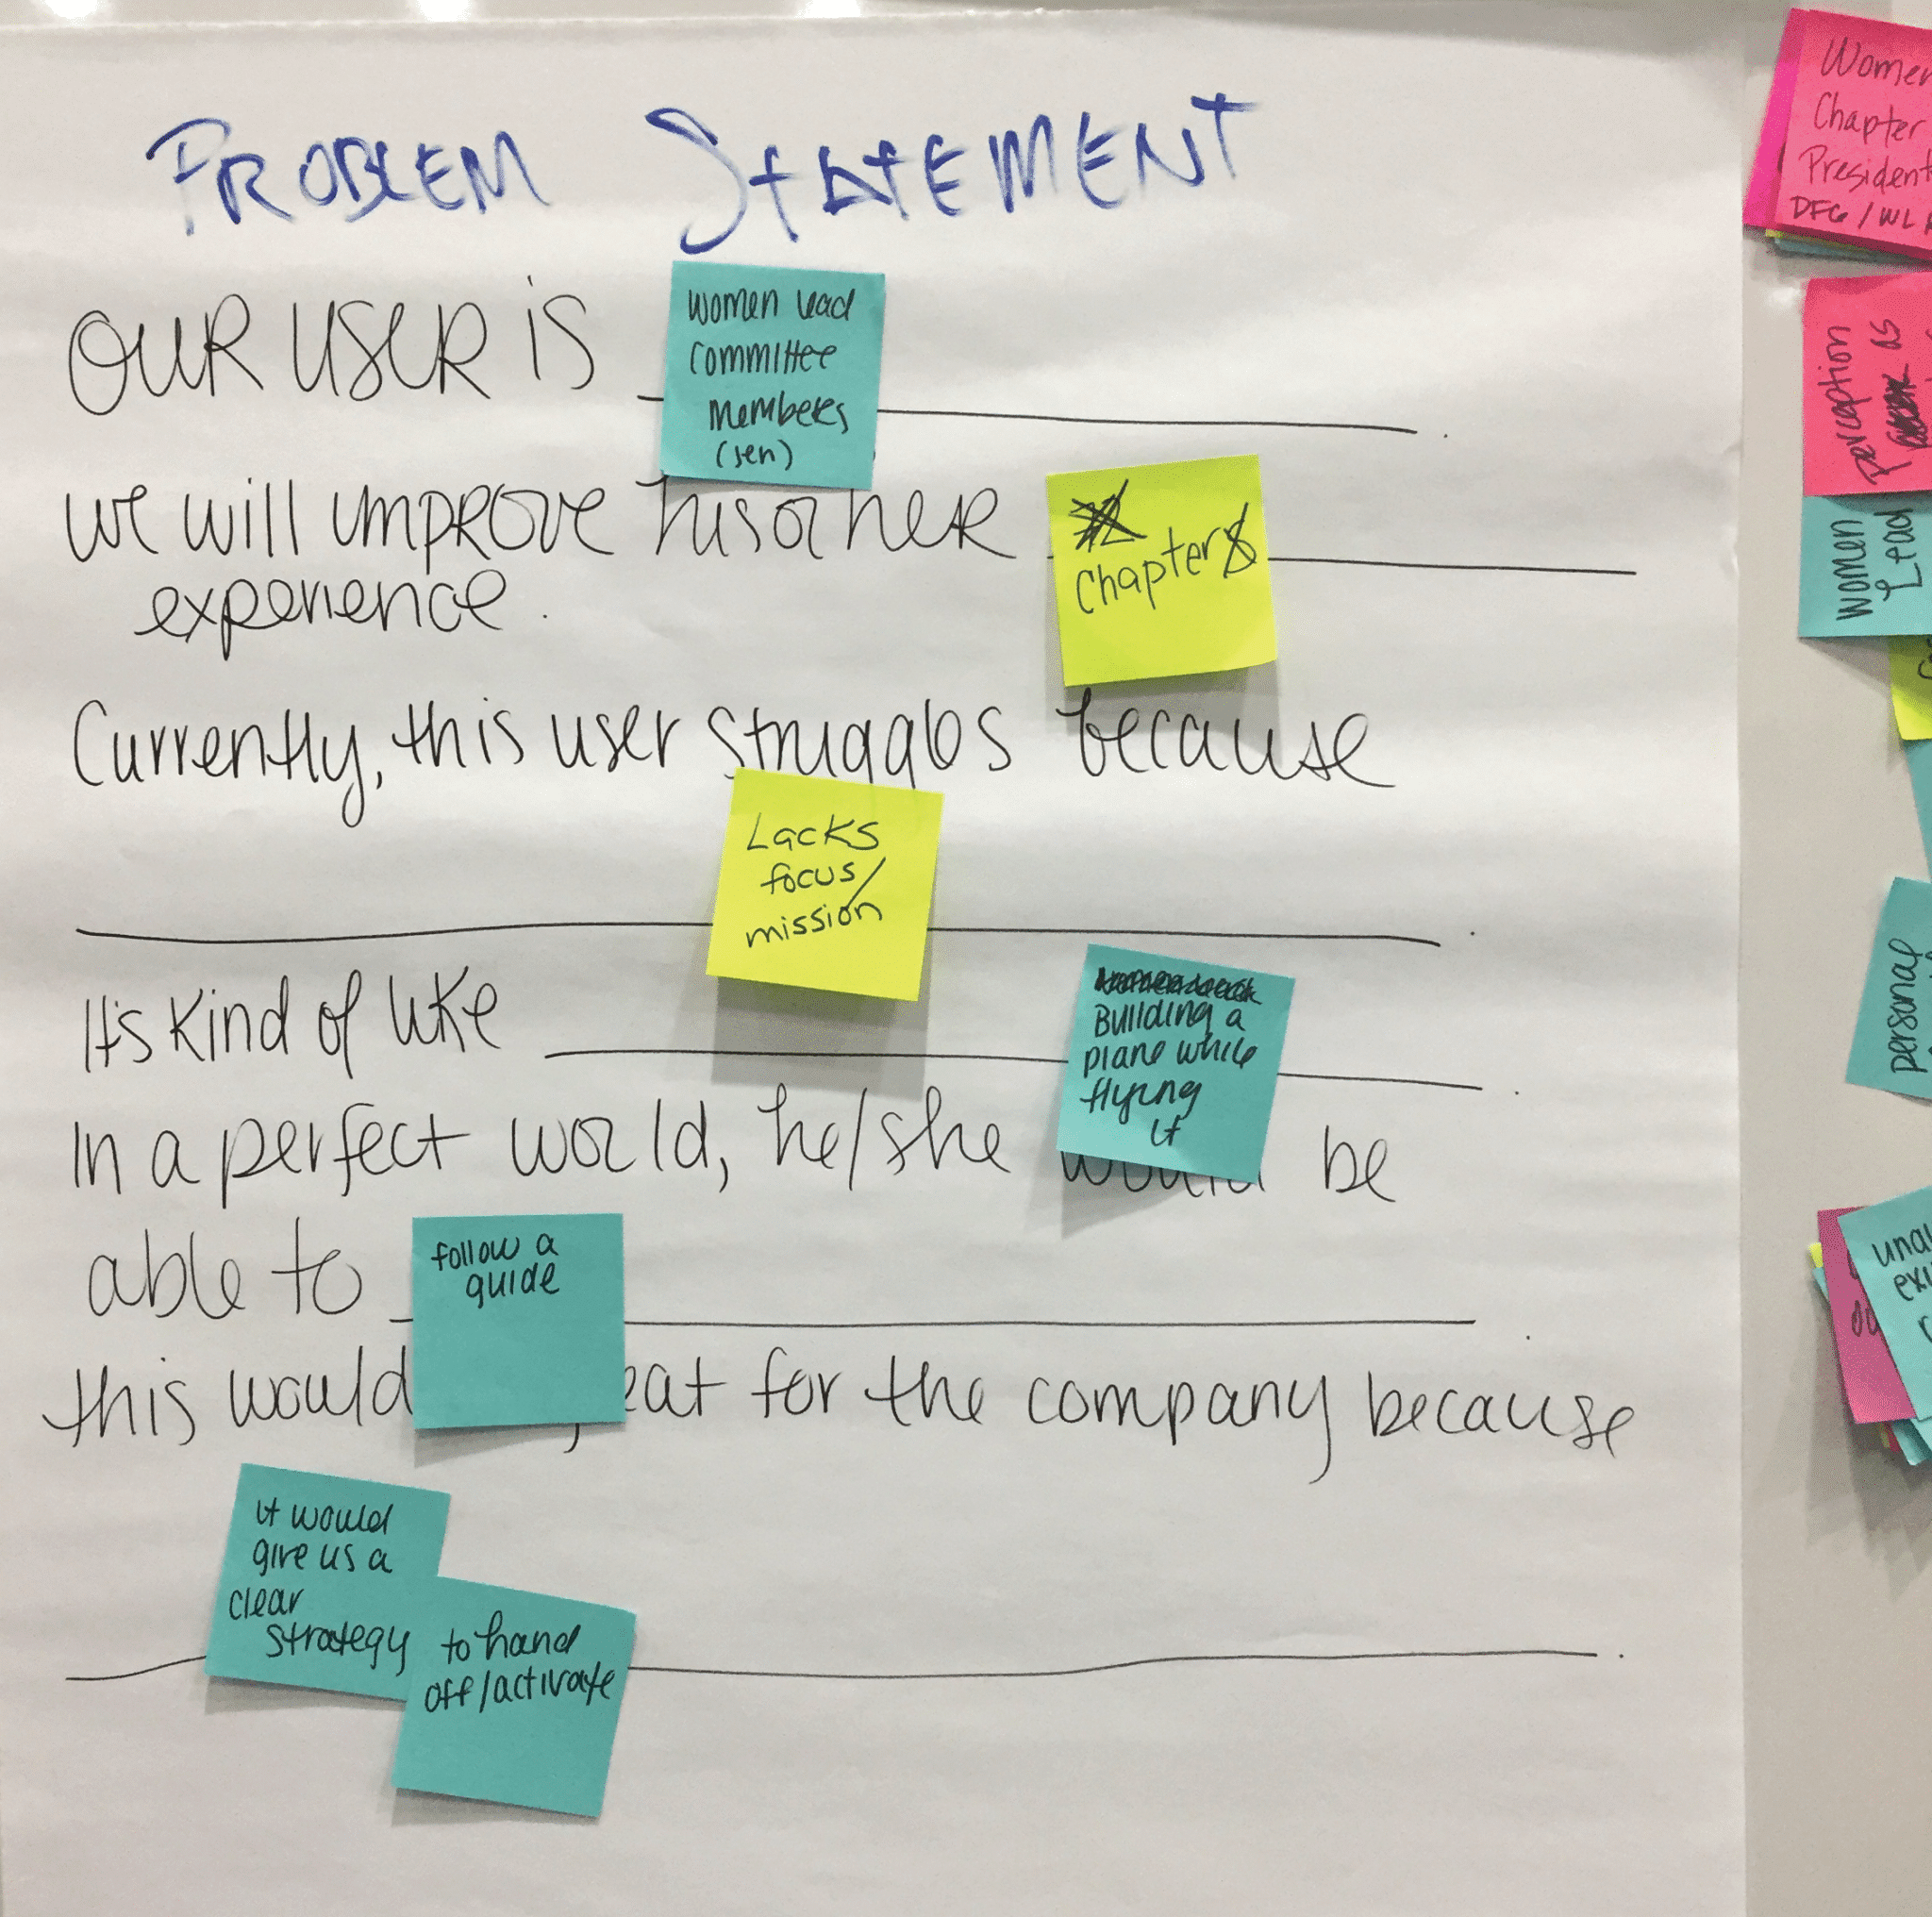 PROBLEM STATEMENT
OUR USER IS
women lead
committee
members
(jen)
we will improve his or her
experience.
Chapter
Currently, this user struggles because
Lacks
focus/
mission
It's kind of like
Building a
plane while
flying
it
In a perfect world, he/she would be
able to
follow a
guide
this would eat for the company because
it would
give us a
clear
strategy
to hand
off/activate
Women
Chapter
President
DFG/WL
perception
as
women
Lead
personal